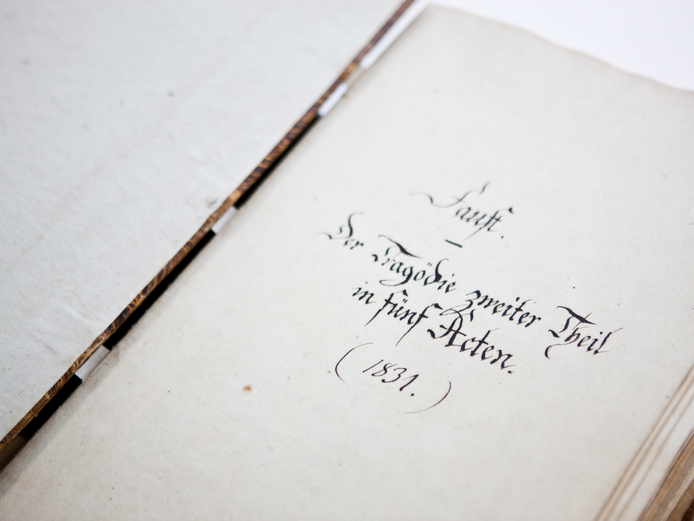 Faust.
—
Der Tragödie zweiter Theil
in fünf Acten.
(1831.)